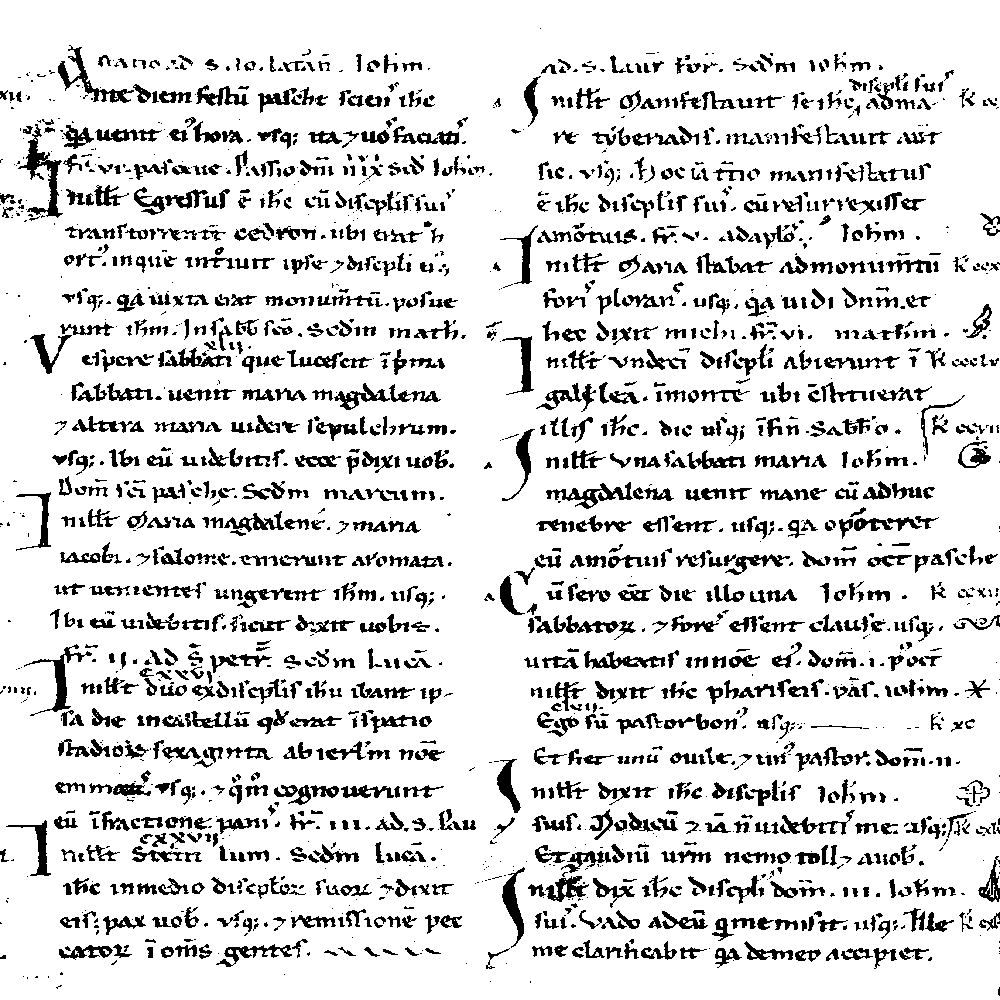 ad S. Io. latan. Iohm.
Ante diem festū pasche scien ihc
qa uenit ei hora. usq; ita 7 uos faciatis.
Passio dm
In illt Egressus ē ihc cū discplis suis
trans torrente cedron. ubi erat h
ort. in que introiuit ipse 7 discpli ei;
usq; qa iuxta erat monumtū. posue
runt ihm. In sabb sco. Sedm math.
xlii.
Vespere sabbati que lucescit ī pma
sabbati. uenit maria magdalena
7 altera maria uidere sepulchrum.
usq;. Ibi eū uidebitis. ecce pdixi uob.
Dom sci pasche. Sedm marcum.
In illt Maria magdalene. 7 maria
iacobi. 7 salome. emerunt aromata.
ut uenientes ungerent ihm. usq;.
Ibi eū uidebitis. sicut dixit uobis.
Fr. II. Ad S petr. Sedm Lucā.
In illt duo ex discplis ihu ibant ip-
sa die in castellū qd erat īspatio
stadiorum sexaginta ab ierlm noē
emmaus. usq;. 7 qm cognouerunt
eū īfractione panis. Fr. III. ad. S. Pau
cxxvii
In illt Stetit lum. Sedm Lucā.
ihc in medio discploꝝ suoꝝ 7 dixit
eis; pax uob. usq;. 7 remissionē pec
catoꝝ ī oms gentes.
ad. S. Laur for. Sedm Iohm.
discpli suis
In illt Manifestauit se ihc ad ma
re tyberiadis. manifestauit aūt
sic. usq; Hoc iā ttio manifestatus
ē ihc discplis suis. cū resurrexisset
a mōtuis. Fr. V. ad aplo. Iohm.
In illt Maria stabat ad monumtū
foris plorans. usq; qa uidi dnm. et
hec dixit michi. Fr. VI. mathm.
In illt Vndeci discpli abierunt ī
galileā. ī montē ubi cstituerat
illis ihc. die usq; ī fin. Sabbo.
In illt Vna sabbati maria Iohm.
magdalena uenit mane cū adhuc
tenebre essent. usq;. qa opōteret
eū a mōtuis resurgere. dom oct pasche
Cū sero eēt die illo una Iohm.
sabbatoꝝ. 7 fores essent clause. usq;.
uitā habeatis in noē ei. dom. I. p oct
In illt dixit ihc phariseis. pas. Iohm.
Ego sū pastor bon. usq;.
Et fiet unū ouile. 7 un pastor. dom. II.
In illt dixit ihc discplis Iohm.
suis. Modicū 7 iā n uidebitis me. usq;
Et gaudiū urm nemo toll 7 a uob.
In illt dix ihc discpli dom. III. Iohm.
suis. Vado ad eū q me misit. usq; Ille
me clarificabit qa de meo accipiet.